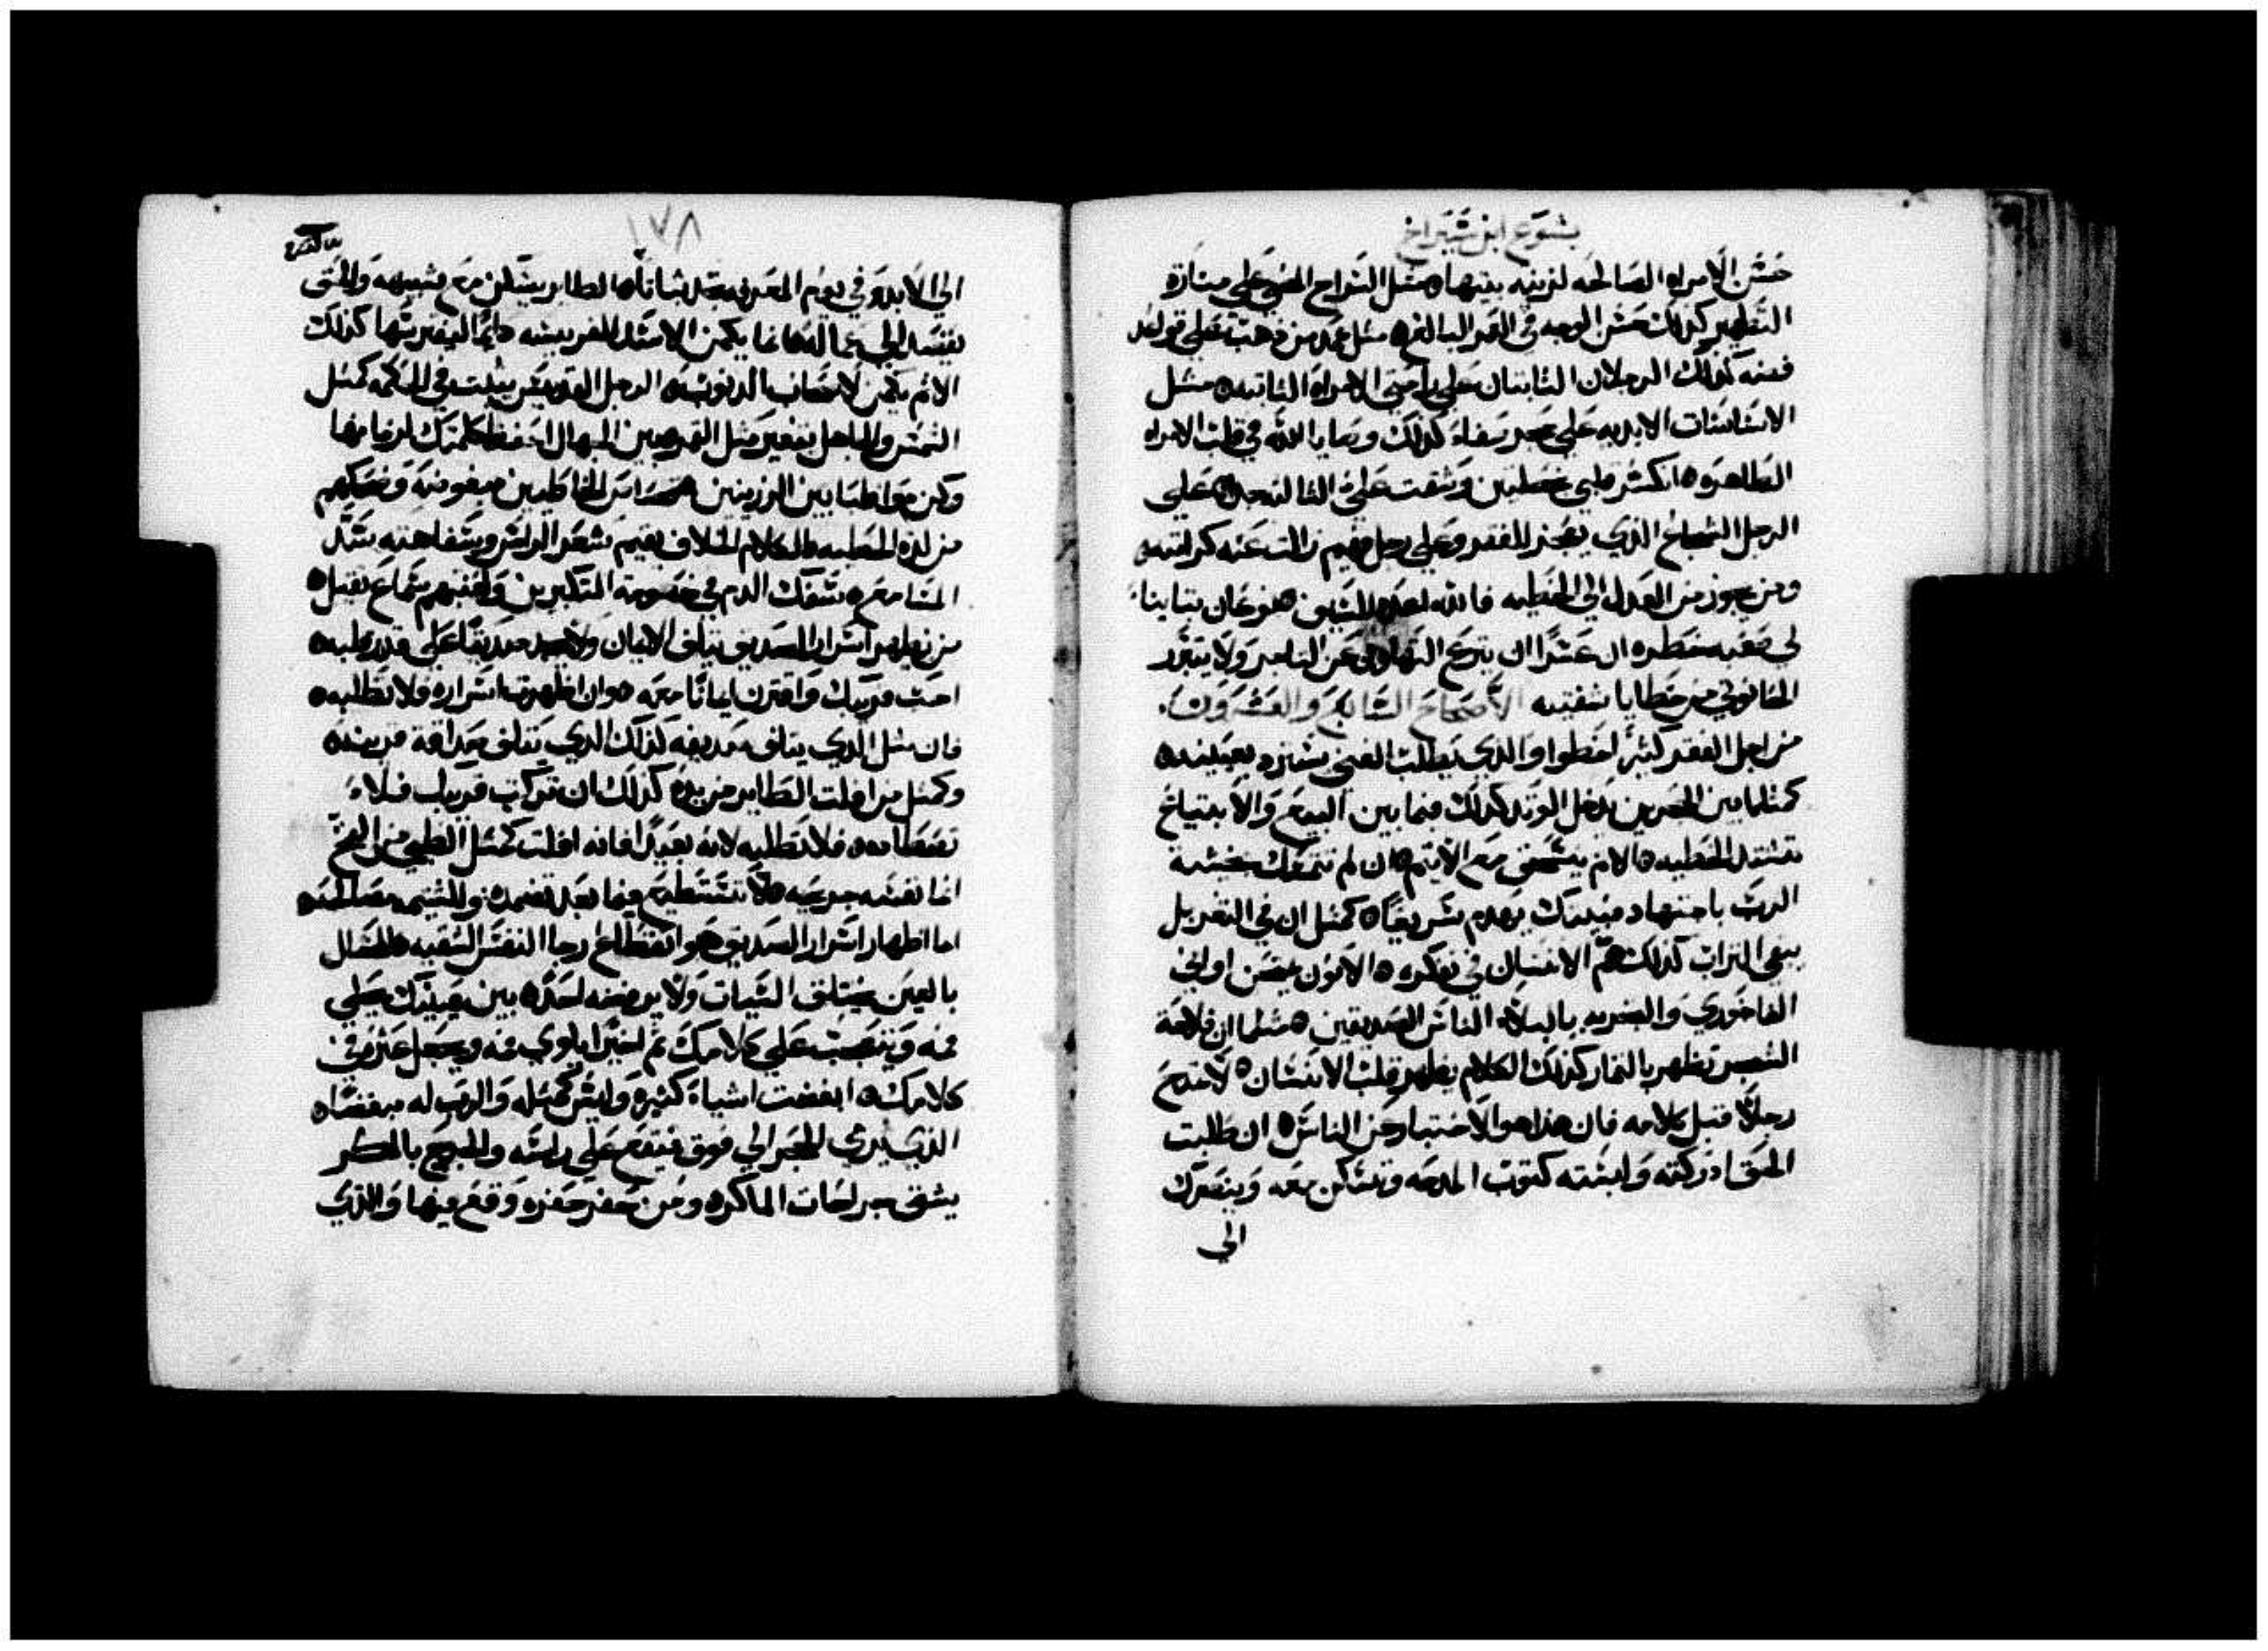 يشوع ابن شيراخ
حسن الامراه الصالحه لزينه بيتها ه مثل السراج المضي علي مناره
التطهير كذلك حسن الوجه في القد البالغ ه مثل عمد من ذهب علي قواعد
فضه كذلك الرجلان الثابتان علي راحتي الامراه الثابته ه مثل
الاساسات الابديه علي حجر صفاء كذلك وصايا الله في قلب الامراه
الطاهره ه انكسر قلبي بخصلتين وسقت علي الثالثه حدا ه علي
الرجل الشجاع الذي يعجز للفقر وعلي رجل فهيم زالت عنه كرامته ه
ومن يجوز من العدل الي الخطيه فالله اعده للسيف ه نوعان بتاينا
لي صعبه خطره ان عسرا ان يترع التهاون عن التاجر ولا يتبرر
الحانوتي من خطايا شفتيه الاصحاح السابع والعشرون
من اجل الفقر كثير اخطوا والذي يطلب الغني يشتزه بعينيه ه
كمثلما بين الحجرين يدخل الوتد كذلك فيما بين البيع والابتياع
تشتد الخطيه ه الاثم ينسحق مع الاثيم ه ان لم تتمسك بخشية
الرب باجتهاد فبيتك يهدم سريعا ه كمثل ان في التغربل
يبقي التراب كذلك هم الانسان في تفكره ه الاتون يمتحن اواني
الفاخوري والتجربه بالبلاء الناس الصديقين ه مثلما ان فلاحة
الشجر تظهر بالثمار كذلك الكلام يظهر قلب الانسان ه لا تمدح
رجلا قبل كلامه فان هذا هو الاختبار عن الناس ه ان طلبت
الحق ادركته ولبسته كثوب المدحه وتسكن معه وينصرك
الي
١٧٨
الي الابد وفي يوم المعرفه تجد ثباتا ه الطاير يسكن مع شبيهه والحق
يقصد الي عماله ه انما يكمن الاسد للفريسه دائما ليفترسها كذلك
الاثم يكمن لاصحاب الذنوب ه الرجل القديس يثبت في الحكمه كمثل
الشمس والجاهل يتغير مثل القمر ه بين الجهال احفظ كلمتك لزمانها
وكن مواظبا بين الرزينين ه حضرات الخاطيين مبغوضه وضحكهم
من لذه الخطيه ه الكلام الحلاف يقيم شعر الراس وسفاهته سد
المسامع ه سفك الدم في خصومة المتكبرين ولعنتهم سماع ثقيل ه
من يظهر اسرار الصديق يتلف الايمان ولا يجد صديقا علي قدر طلبه ه
احب قريبك واقترن ايمانا معه ه وان اظهرت اسراره فلا تطلبه ه
فان مثل الذي يتلف صديقه كذلك الذي يتلف صداقة قريبه ه
وكمثل من افلت الطاير من يده كذلك ان تركت قريبك فلا
تصطاده ه فلا تطلبه لانه بعيدا فانه افلت كمثل الظبي من الفخ
انما نفسه جريحه ه لا تستطيع فيما بعد تضمده وللشتيمه مصالحه ه
اما اظهار اسرار الصديق هو انقطاع رجا النفس الشقيه ه المتدلل
بالعين يختلق السيات ولا يرفضه احد ه بين عينيك يحلي
فمه ويتعجب علي كلامك ثم اخيرا يلوي فمه ويجعل عثره في
كلامك ه ابغضت اشياء كثيره وليس كمثله والرب له مبغضا ه
الذي يرمي الحجر الي فوق فيقع علي راسه والجرح بالمكر
يشق جراحات الماكره ومن حفر حفره وقع فيها والذي